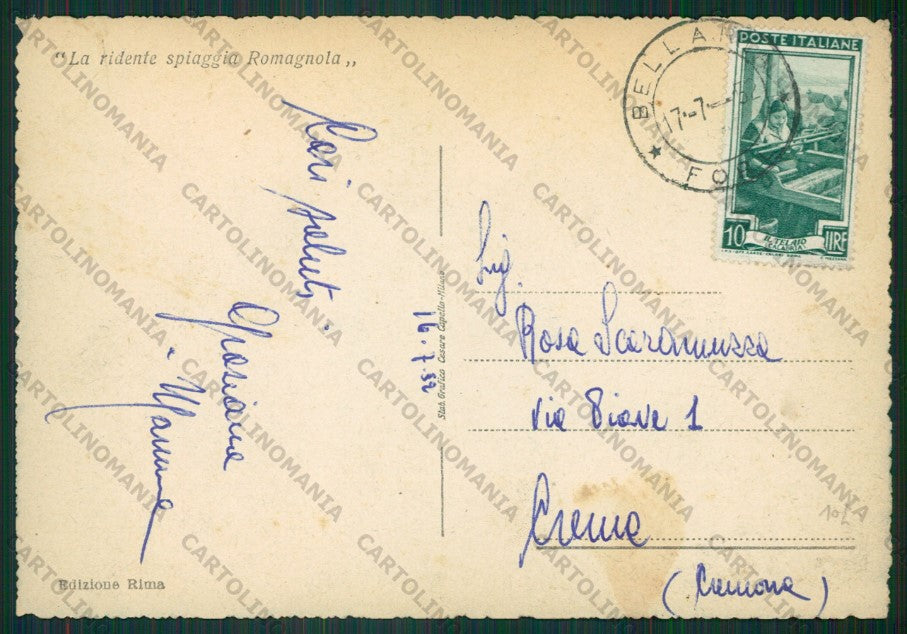 "La ridente spiaggia Romagnola„
BELLARIA
17-7-
FO
POSTE ITALIANE
10 LIRE
IL TELAIO
CALABRIA
Cari saluti.
Graziana
e Mamma
16.7.52
Stab. Grafico Cesare Capello-Milano
Sig.
Rosa Scaramuzza
Via Piave 1
Crema
(Cremona)
Edizione Rima
CARTOLINOMANIA